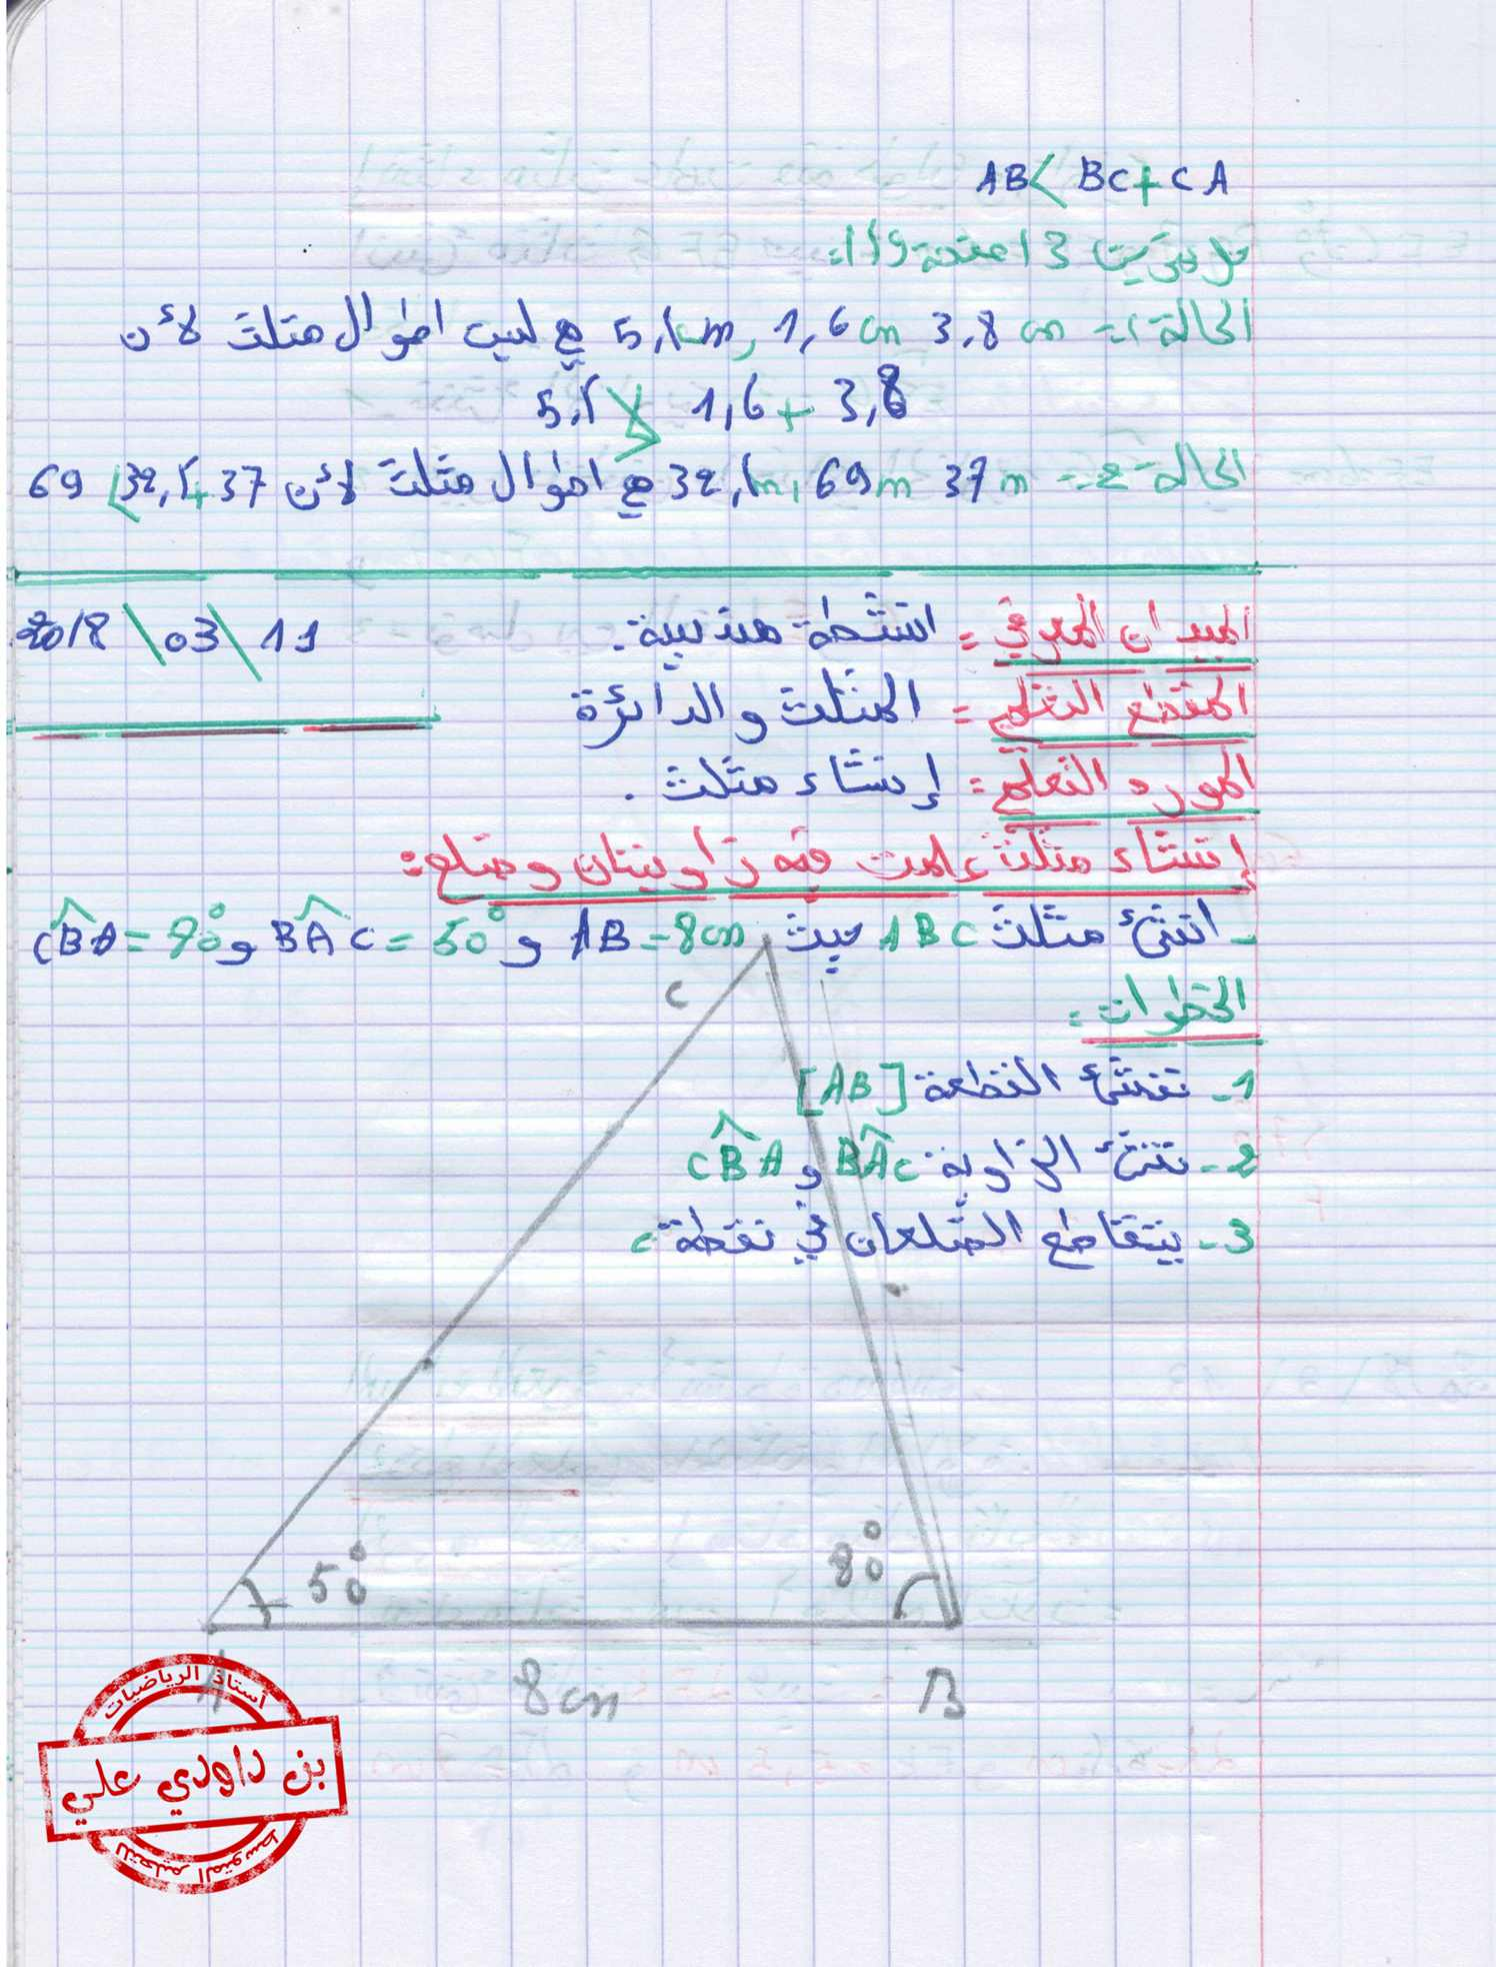 AB < BC + CA
الحالة 1 - 3,8 cm 1,6 cm, 5,1 cm هي ليست اطوال مثلث لأن
5,1 1,6 + 3,8
الحالة 2 - 37 m 69 m, 32,1 m هي اطوال مثلث لأن 69 < 32,1 + 37
الميدان المعرفي = انشطة هندسية.
11 \ 03 \ 2018
المقطع التعلمي = المثلث والدائرة
المورد التعلمي = إنشاء مثلث.
إنشاء مثلث علمت فيه زاويتان وضلع:
- انشئ مثلث ABC حيث AB = 8 cm و BÂC = 50° و
الخطوات =
1- ننشئ القطعة [AB]
2- ننشئ الزاوية BÂC و CB̂A
3- يتقاطع الضلعان في نقطة c
C
50°
80°
A
8 cm
B
أستاذ الرياضيات
بن داودي علي
للتعليم المتوسط